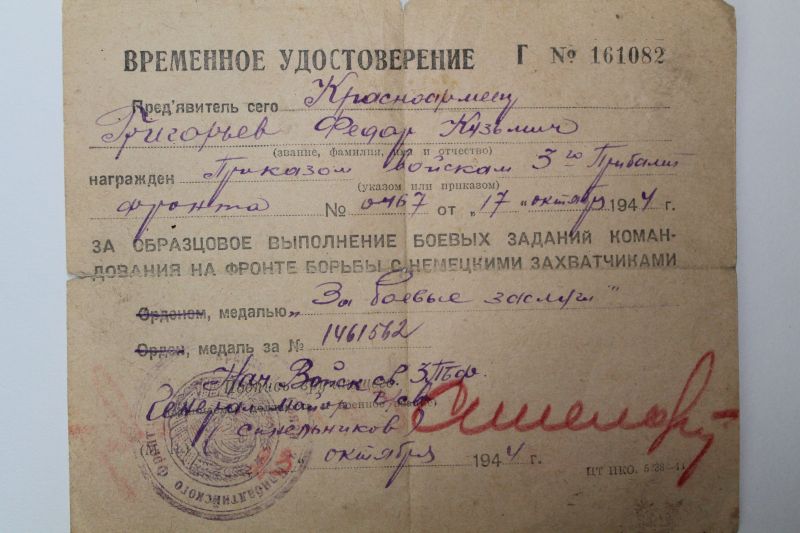 ВРЕМЕННОЕ УДОСТОВЕРЕНИЕ Г № 161082
Пред'явитель сего Красноармеец
Григорьев Федор Кузьмич
(звание, фамилия, имя и отчество)
награжден Приказом войскам 3го Прибалт
(указом или приказом)
фронта № 0467 от „17" октября 1944 г.
ЗА ОБРАЗЦОВОЕ ВЫПОЛНЕНИЕ БОЕВЫХ ЗАДАНИЙ КОМАН-
ДОВАНИЯ НА ФРОНТЕ БОРЬБЫ С НЕМЕЦКИМИ ЗАХВАТЧИКАМИ
Орденом, медалью „За боевые заслуги"
Орден, медаль за № 1461562
Нач. Войск св. 3 Пбф.
Генерал-майор в/св
Синельников
октября 1944 г.
ЦТ НКО.
Прибалтийского Фронт